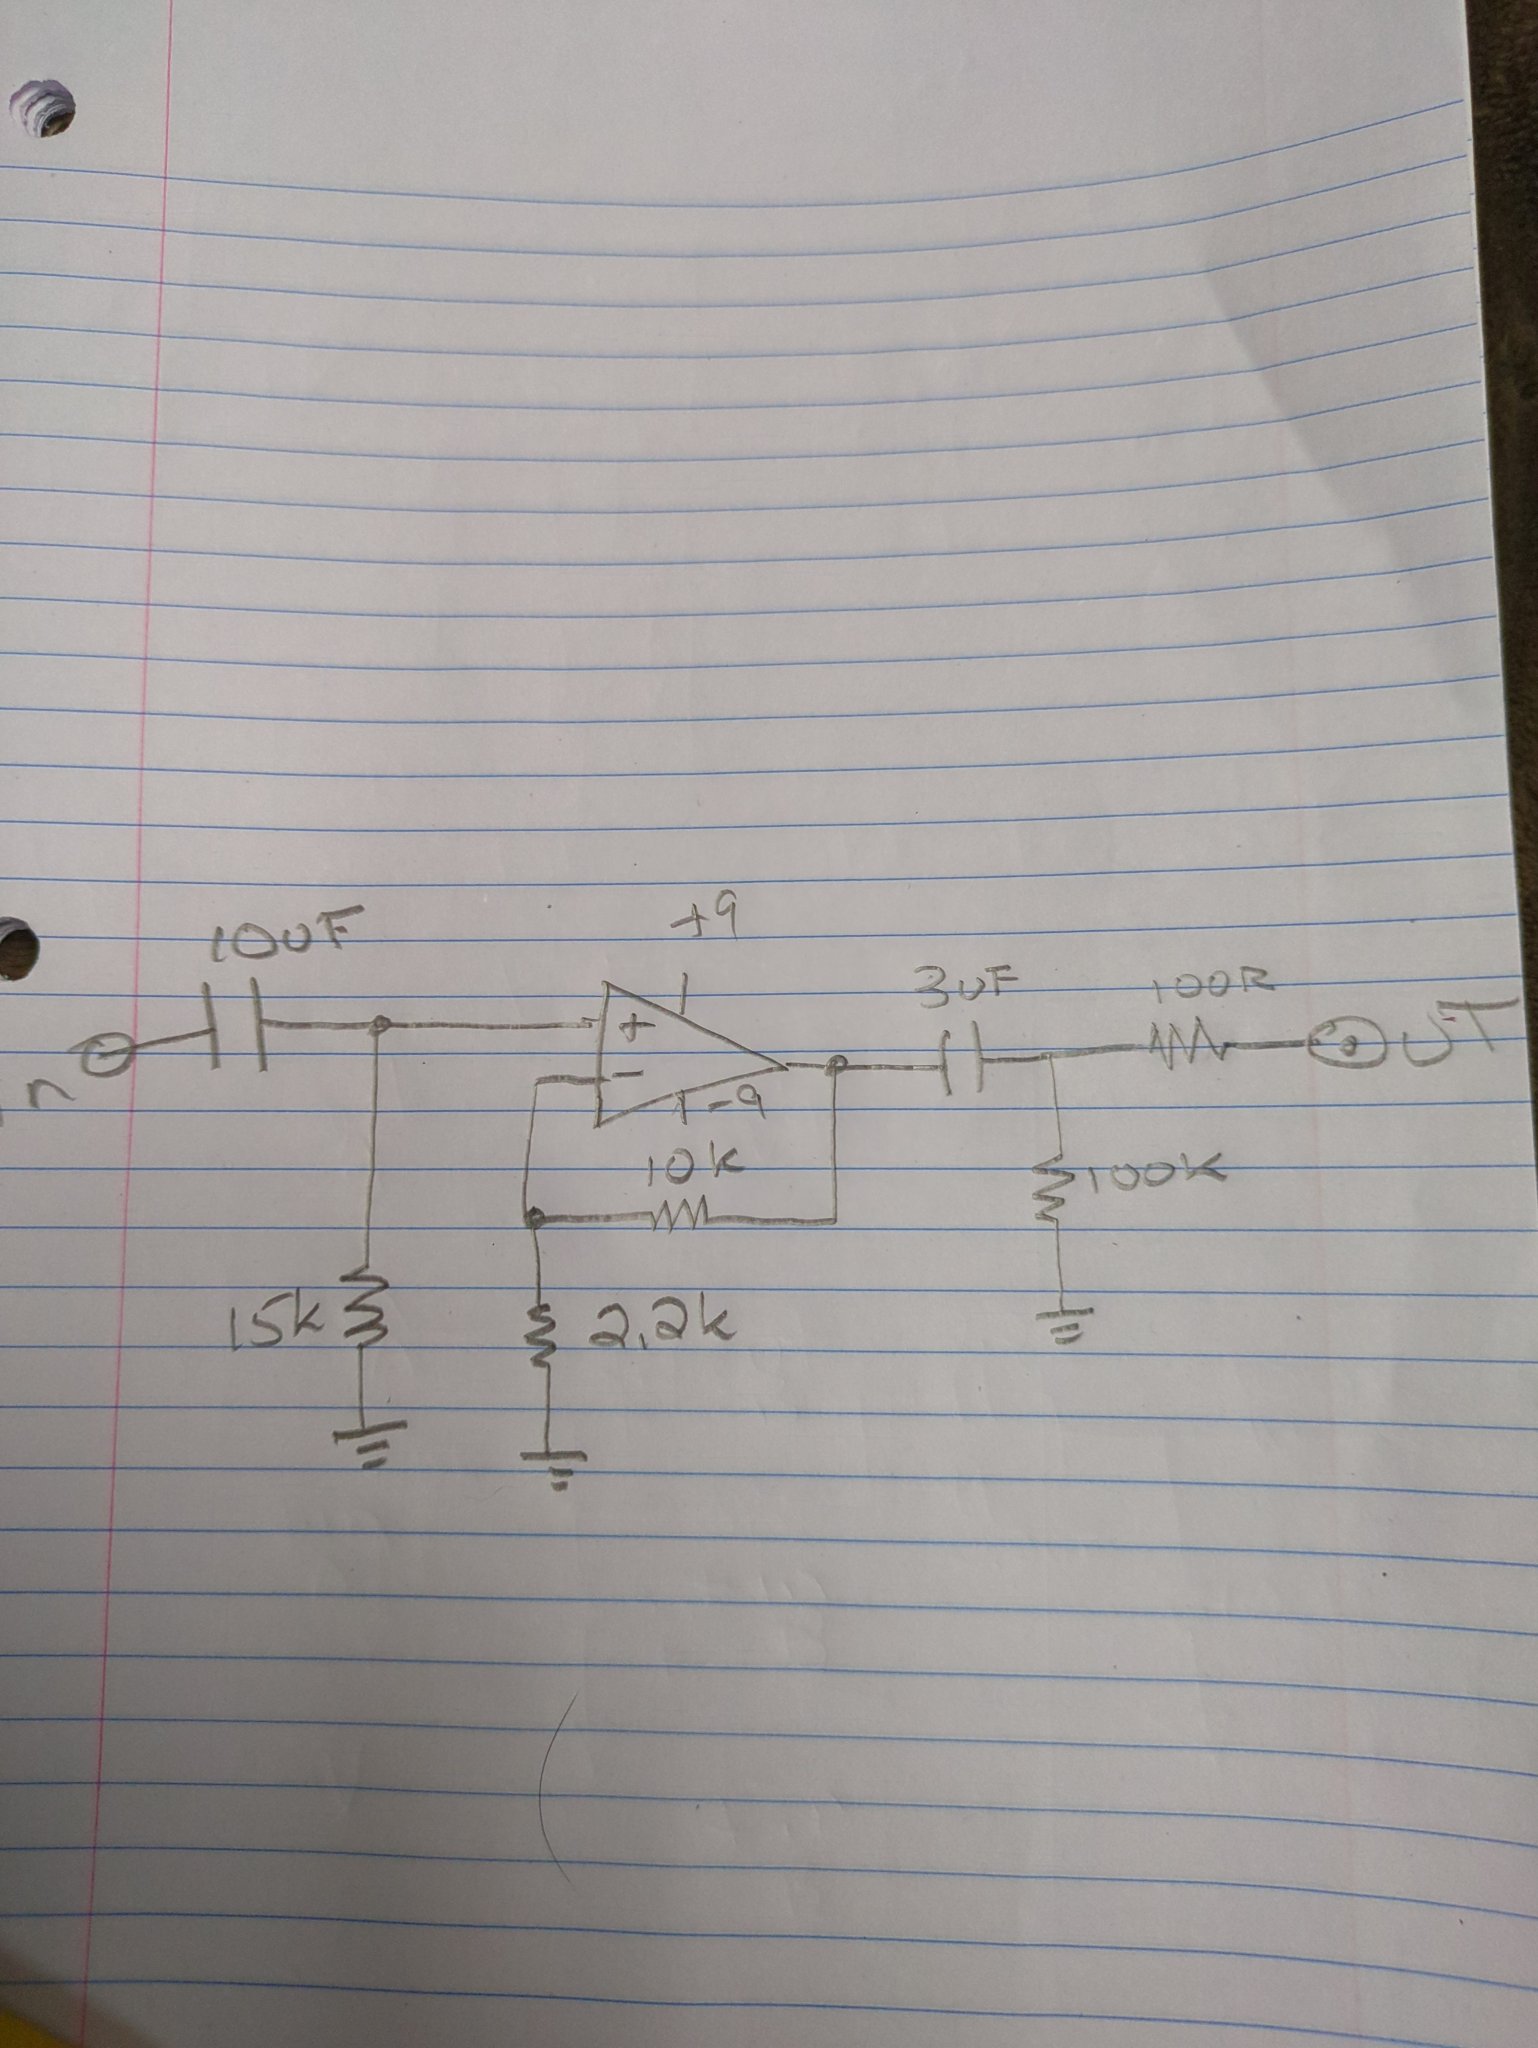 10uF
+9
3uF
100R
in
+
OUT
-
-9
10k
100K
15k
2.2k